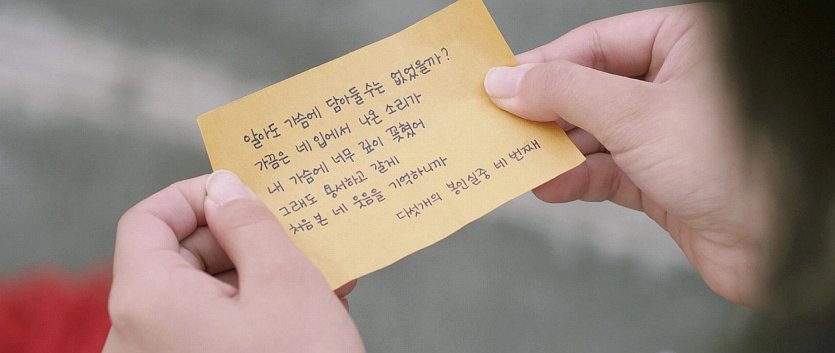 알아도 가슴에 담아둘 수는 없었을까?
가끔은 네 입에서 나온 소리가
내 가슴에 너무 깊이 꽂혔어
그래도 용서하고 갈게
처음 본 네 웃음을 기억하니까
다섯개의 봉인실중 네 번째